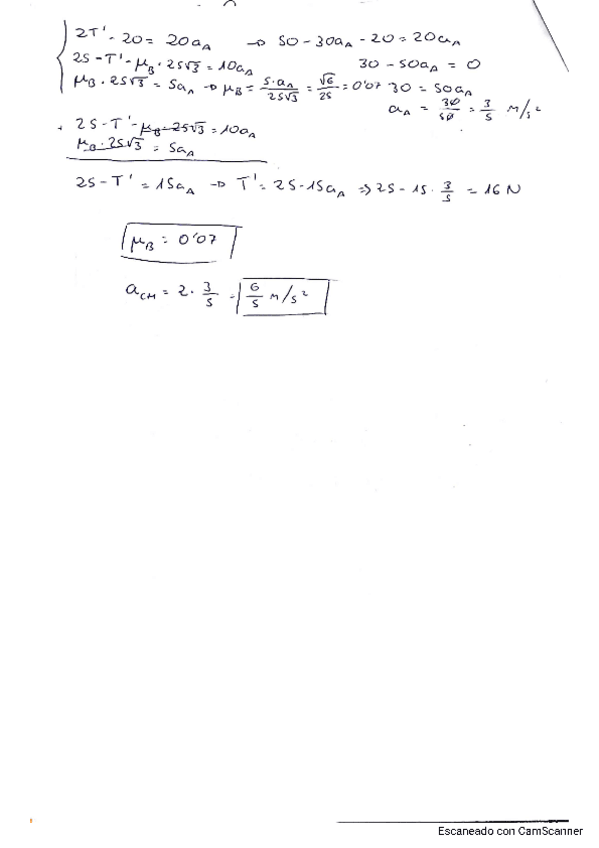 2T' - 20 = 20a_A → 50 - 30a_A - 20 = 20a_A
25 - T' - μ_B · 25√3 = 10a_A 30 - 50a_A = 0
μ_B · 25√3 = 5a_A → μ_B = 5·a_A/25√3 = √6/25 = 0'07 30 = 50a_A
a_A = 30/50 = 3/5 m/s²
+ 25 - T' - μ_B · 25√3 = 10a_A
μ_B · 25√3 = 5a_A
25 - T' = 15a_A → T' = 25 - 15a_A ⇒ 25 - 15 · 3/5 = 16 N
μ_B = 0'07
a_CM = 2 · 3/5 = 6/5 m/s²
Escaneado con CamScanner